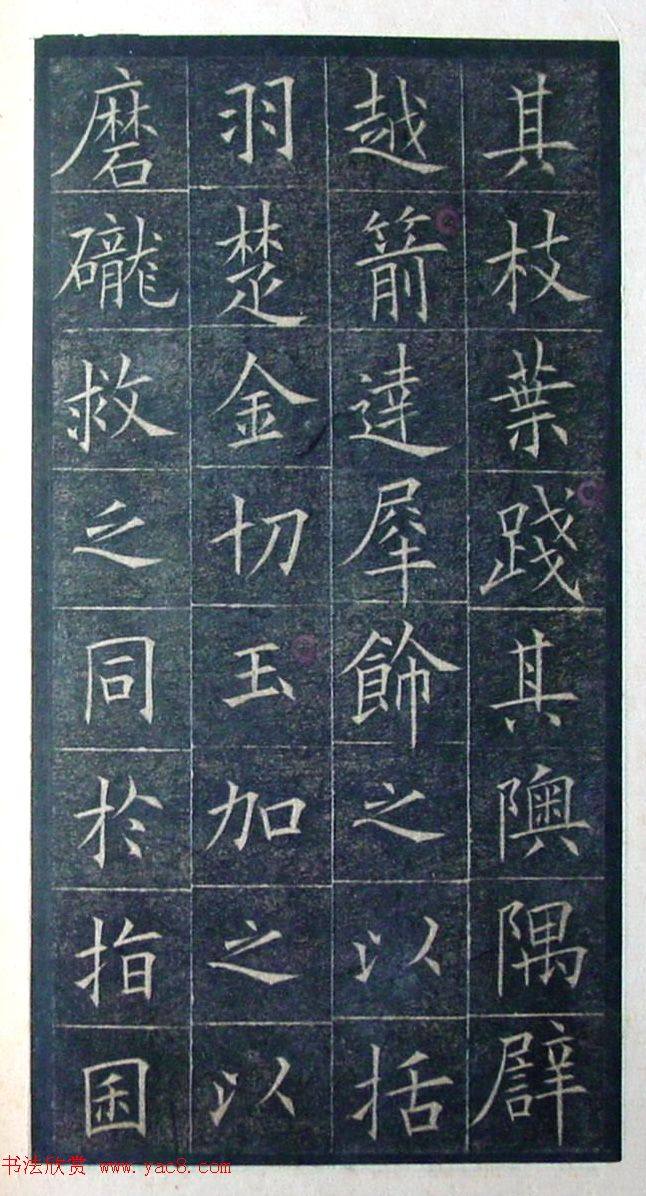 其枝葉踐其隩隅譬
越箭達犀飾之以括
羽楚金切玉加之以
磨礲救之同於指囷
书法欣赏 www.yac8.com